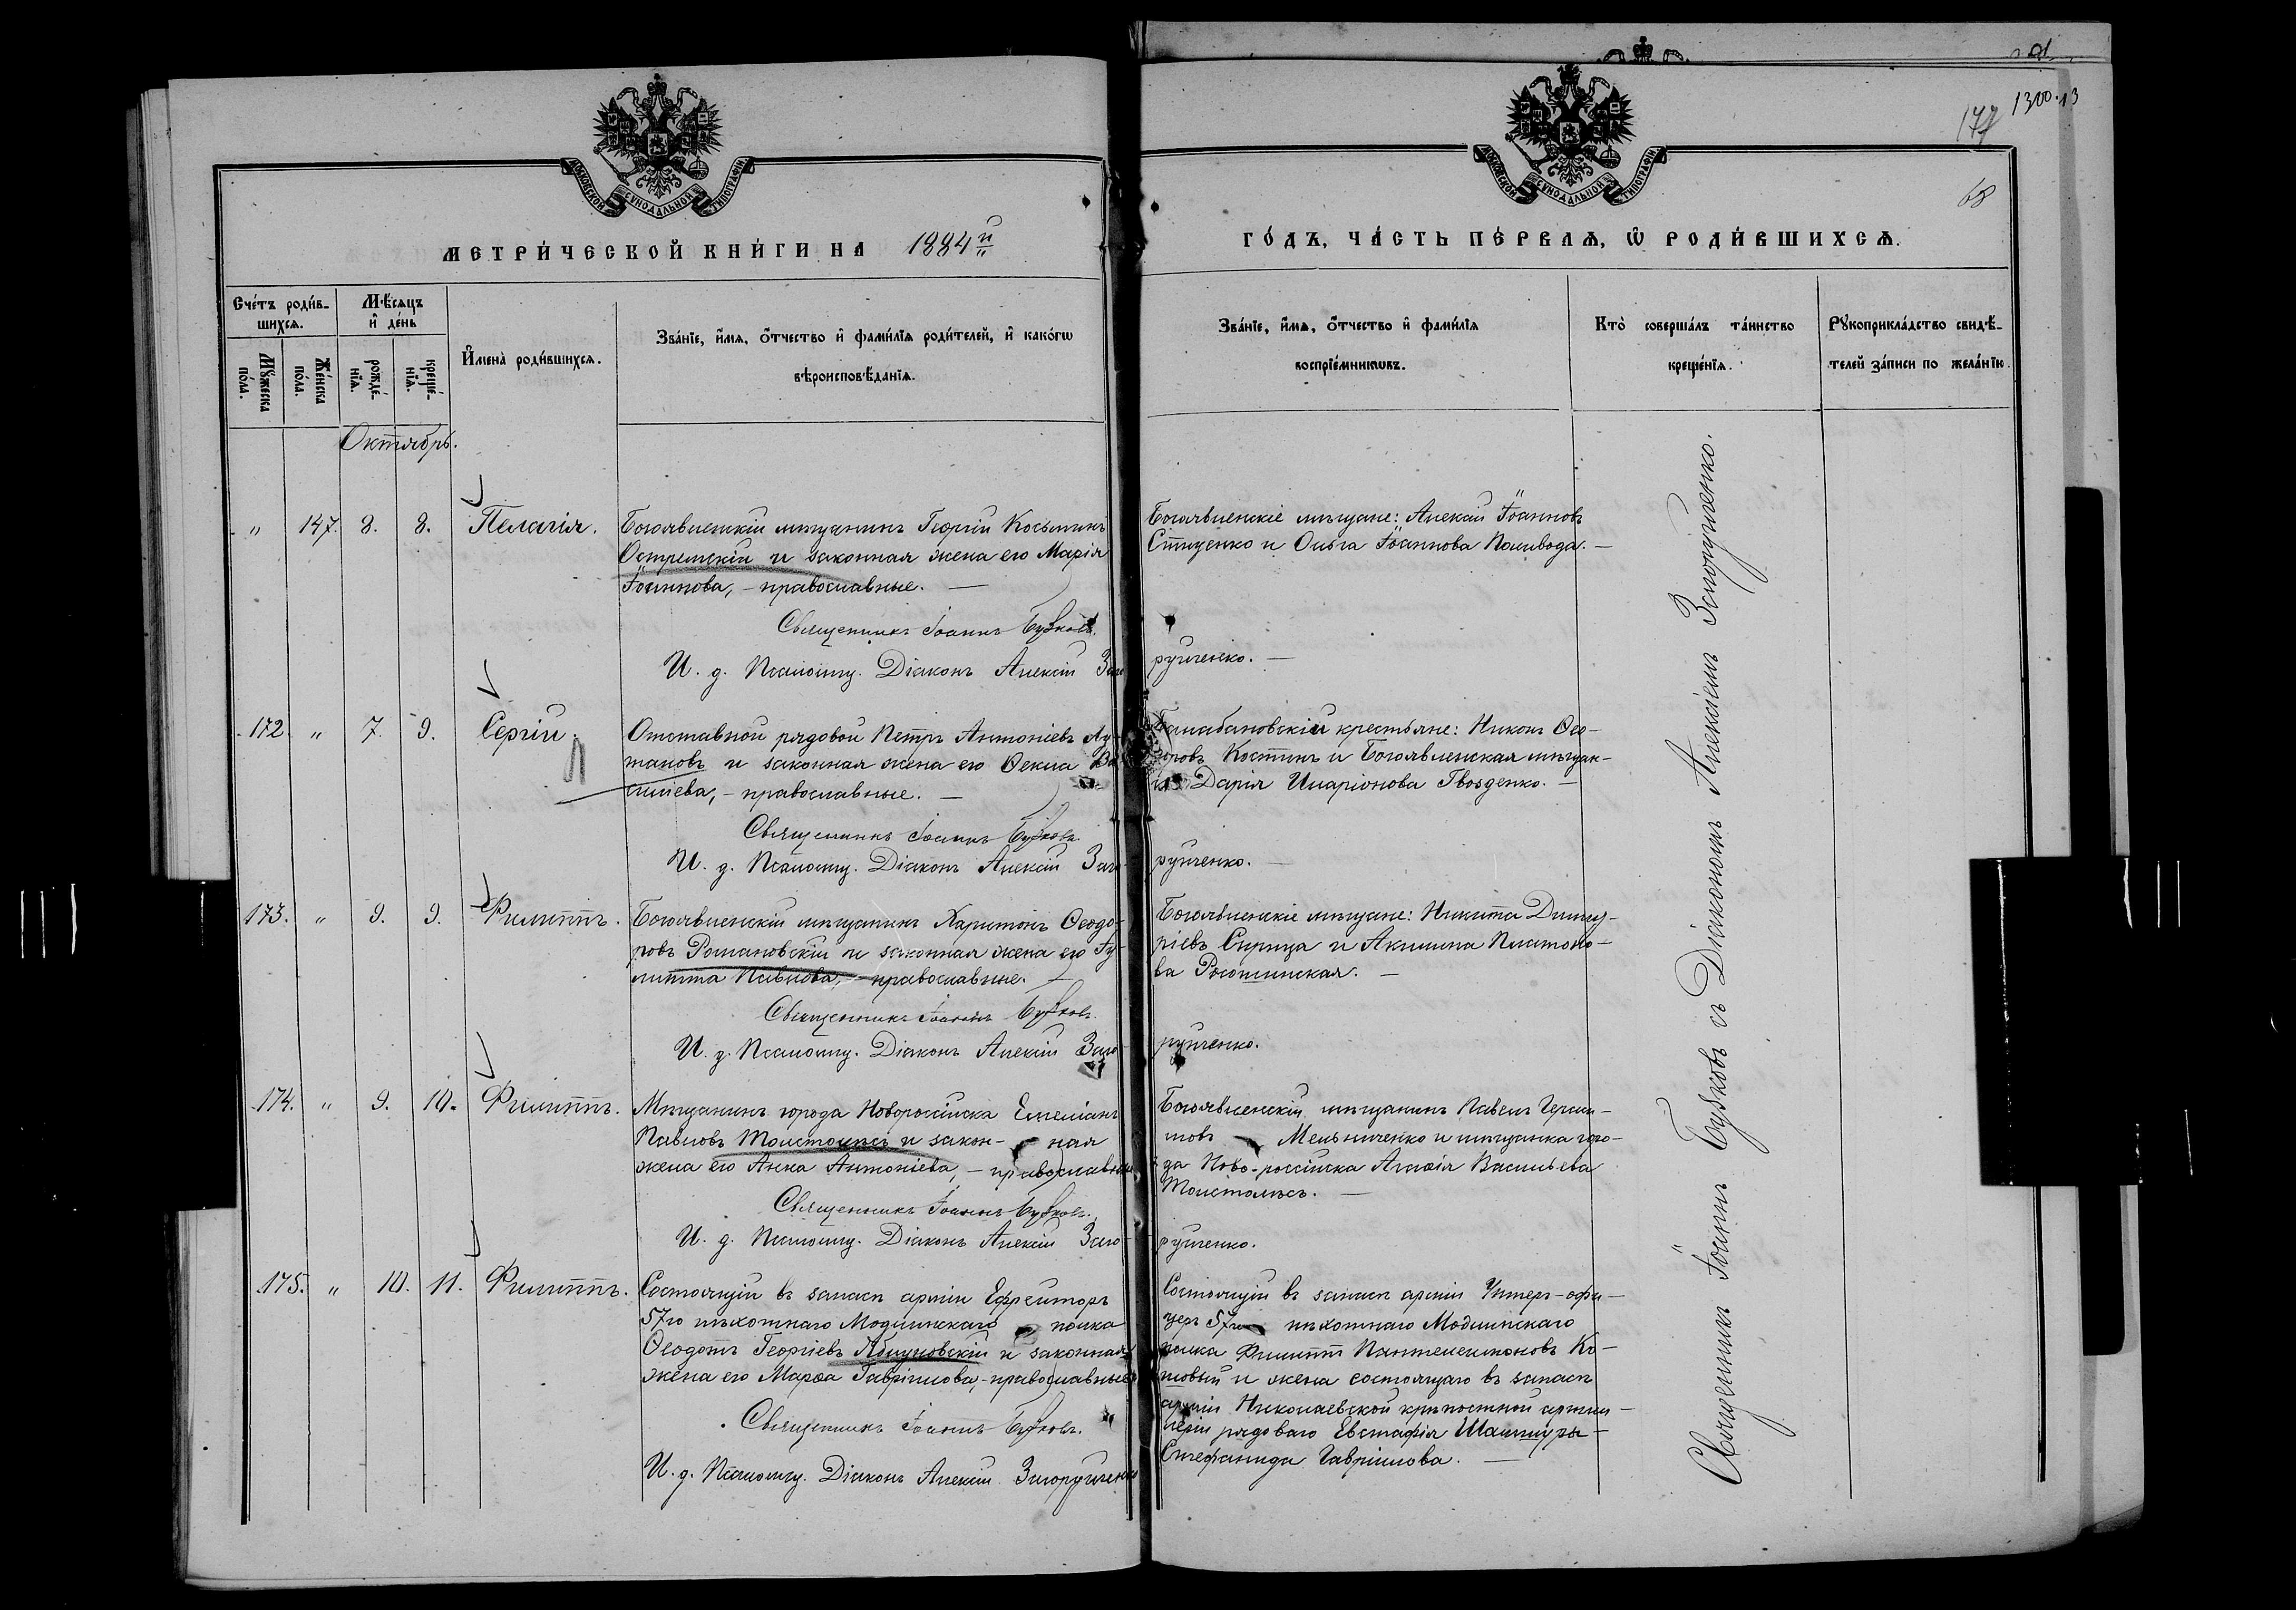 1300.13
177
68
МОСКОВСКОЙ СѴНОДАЛЬНОЙ ТИПОГРАФІИ
МОСКОВСКОЙ СѴНОДАЛЬНОЙ ТИПОГРАФІИ
МЕТРИ́ЧЕСКОЙ КНИ́ГИ НА 1884й
ГО́ДЪ, ЧА́СТЬ ПЕ́РВАѦ, Ѡ҆ РОДИ́ВШИХСѦ.
Сче́тъ роди́в-
шихсѧ.
Мꙋ́жеска по́ла.
Же́нска по́ла.
Мѣ́сѧцъ
и҆ де́нь
рожде́-
нїѧ.
креще́-
нїѧ.
И҆мена̀ роди́вшихсѧ.
Зва́нїе, и҆́мѧ, о҆́тчество и҆ фами́лїѧ роди́телей, и҆ како́гѡ
вѣроисповѣ́данїѧ.
Зва́нїе, и҆́мѧ, о҆́тчество и҆ фами́лїѧ
воспрїе́мникѡвъ.
Кто̀ соверша́лъ та́инство
креще́нїѧ.
Рꙋкоприкла́дство свидѣ́-
телей за́писи по жела́нїю.
Октябрь.
" 147. 8. 8. Пелагія.
Богоявленскій мѣщанинъ Георгій Косьминъ
Остримскій и законная жена его Марія
Іоаннова, - православные. —
Священникъ Іоаннъ Бубковъ.
И. д. Псаломщ. Діаконъ Алексій Заго
Богоявленскіе мѣщане: Алексій Іоанновъ
Стиценко и Ольга Іоаннова Поливода. —
рулченко. —
172 " 7. 9. Сергій.
Отставной рядовой Петръ Антоніевъ Лу-
тановъ и законная жена его Ѳекла Ва
силіева, - православные. —
Священникъ Іоаннъ Бубковъ.
И. д. Псаломщ. Діаконъ Алексій Заго-
Балабановскій крестьяне: Никонъ Ѳео-
доровъ Костинъ и Богоявленская мѣщан-
ка Дарія Иларіонова Гвозденко. —
рулченко. —
173. " 9. 9. Филиппъ.
Богоявленскій мѣщанинъ Харитонъ Ѳеодо-
ровъ Романовскій и законная жена его Іу-
литта Павлова, - православные. —
Священникъ Іоаннъ Бубковъ.
И. д. Псаломщ. Діаконъ Алексій Заго-
Богоявленскіе мѣщане: Никита Димит-
ріевъ Скрица и Акилина Платоно-
ва Рогошинская. —
рулченко.
174. " 9. 10. Филиппъ.
Мѣщанинъ города Новороссійска Емеліанъ
Павловъ Толстолѣсъ и закон- ная
жена его Анна Антоніева, - православные
Священникъ Іоаннъ Бубковъ.
И. д. Псаломщ. Діаконъ Алексій Заго-
Богоявленскій мѣщанинъ Павелъ Гераси-
мовъ Мельниченко и мѣщанка горо-
да Ново-россійска Агаѳія Васильева
Толстолѣсъ. —
рулченко.
175. " 10. 11. Филиппъ.
Состоящій въ запасѣ арміи Ефрейторъ
57го пѣхотнаго Модлинскаго полка
Ѳеодотъ Георгіевъ Яблуновскій и законная
жена его Марѳа Гавріилова, - православные
Священникъ Іоаннъ Бубковъ.
И. д. Псаломщ. Діаконъ Алексій Загорулченко
Состоящій въ запасѣ арміи Унтеръ-офи-
церъ 57го пѣхотнаго Модлинскаго
полка Филиппъ Пантелеимоновъ Ко-
шовый и жена состоящаго въ запасѣ
арміи Николаевской крѣпостной артил-
леріи рядоваго Евстафія Шамшуры -
Стефанида Гавріилова. —
Священникъ Іоаннъ Бубковъ съ Діакономъ Алексіемъ Загорулченко.